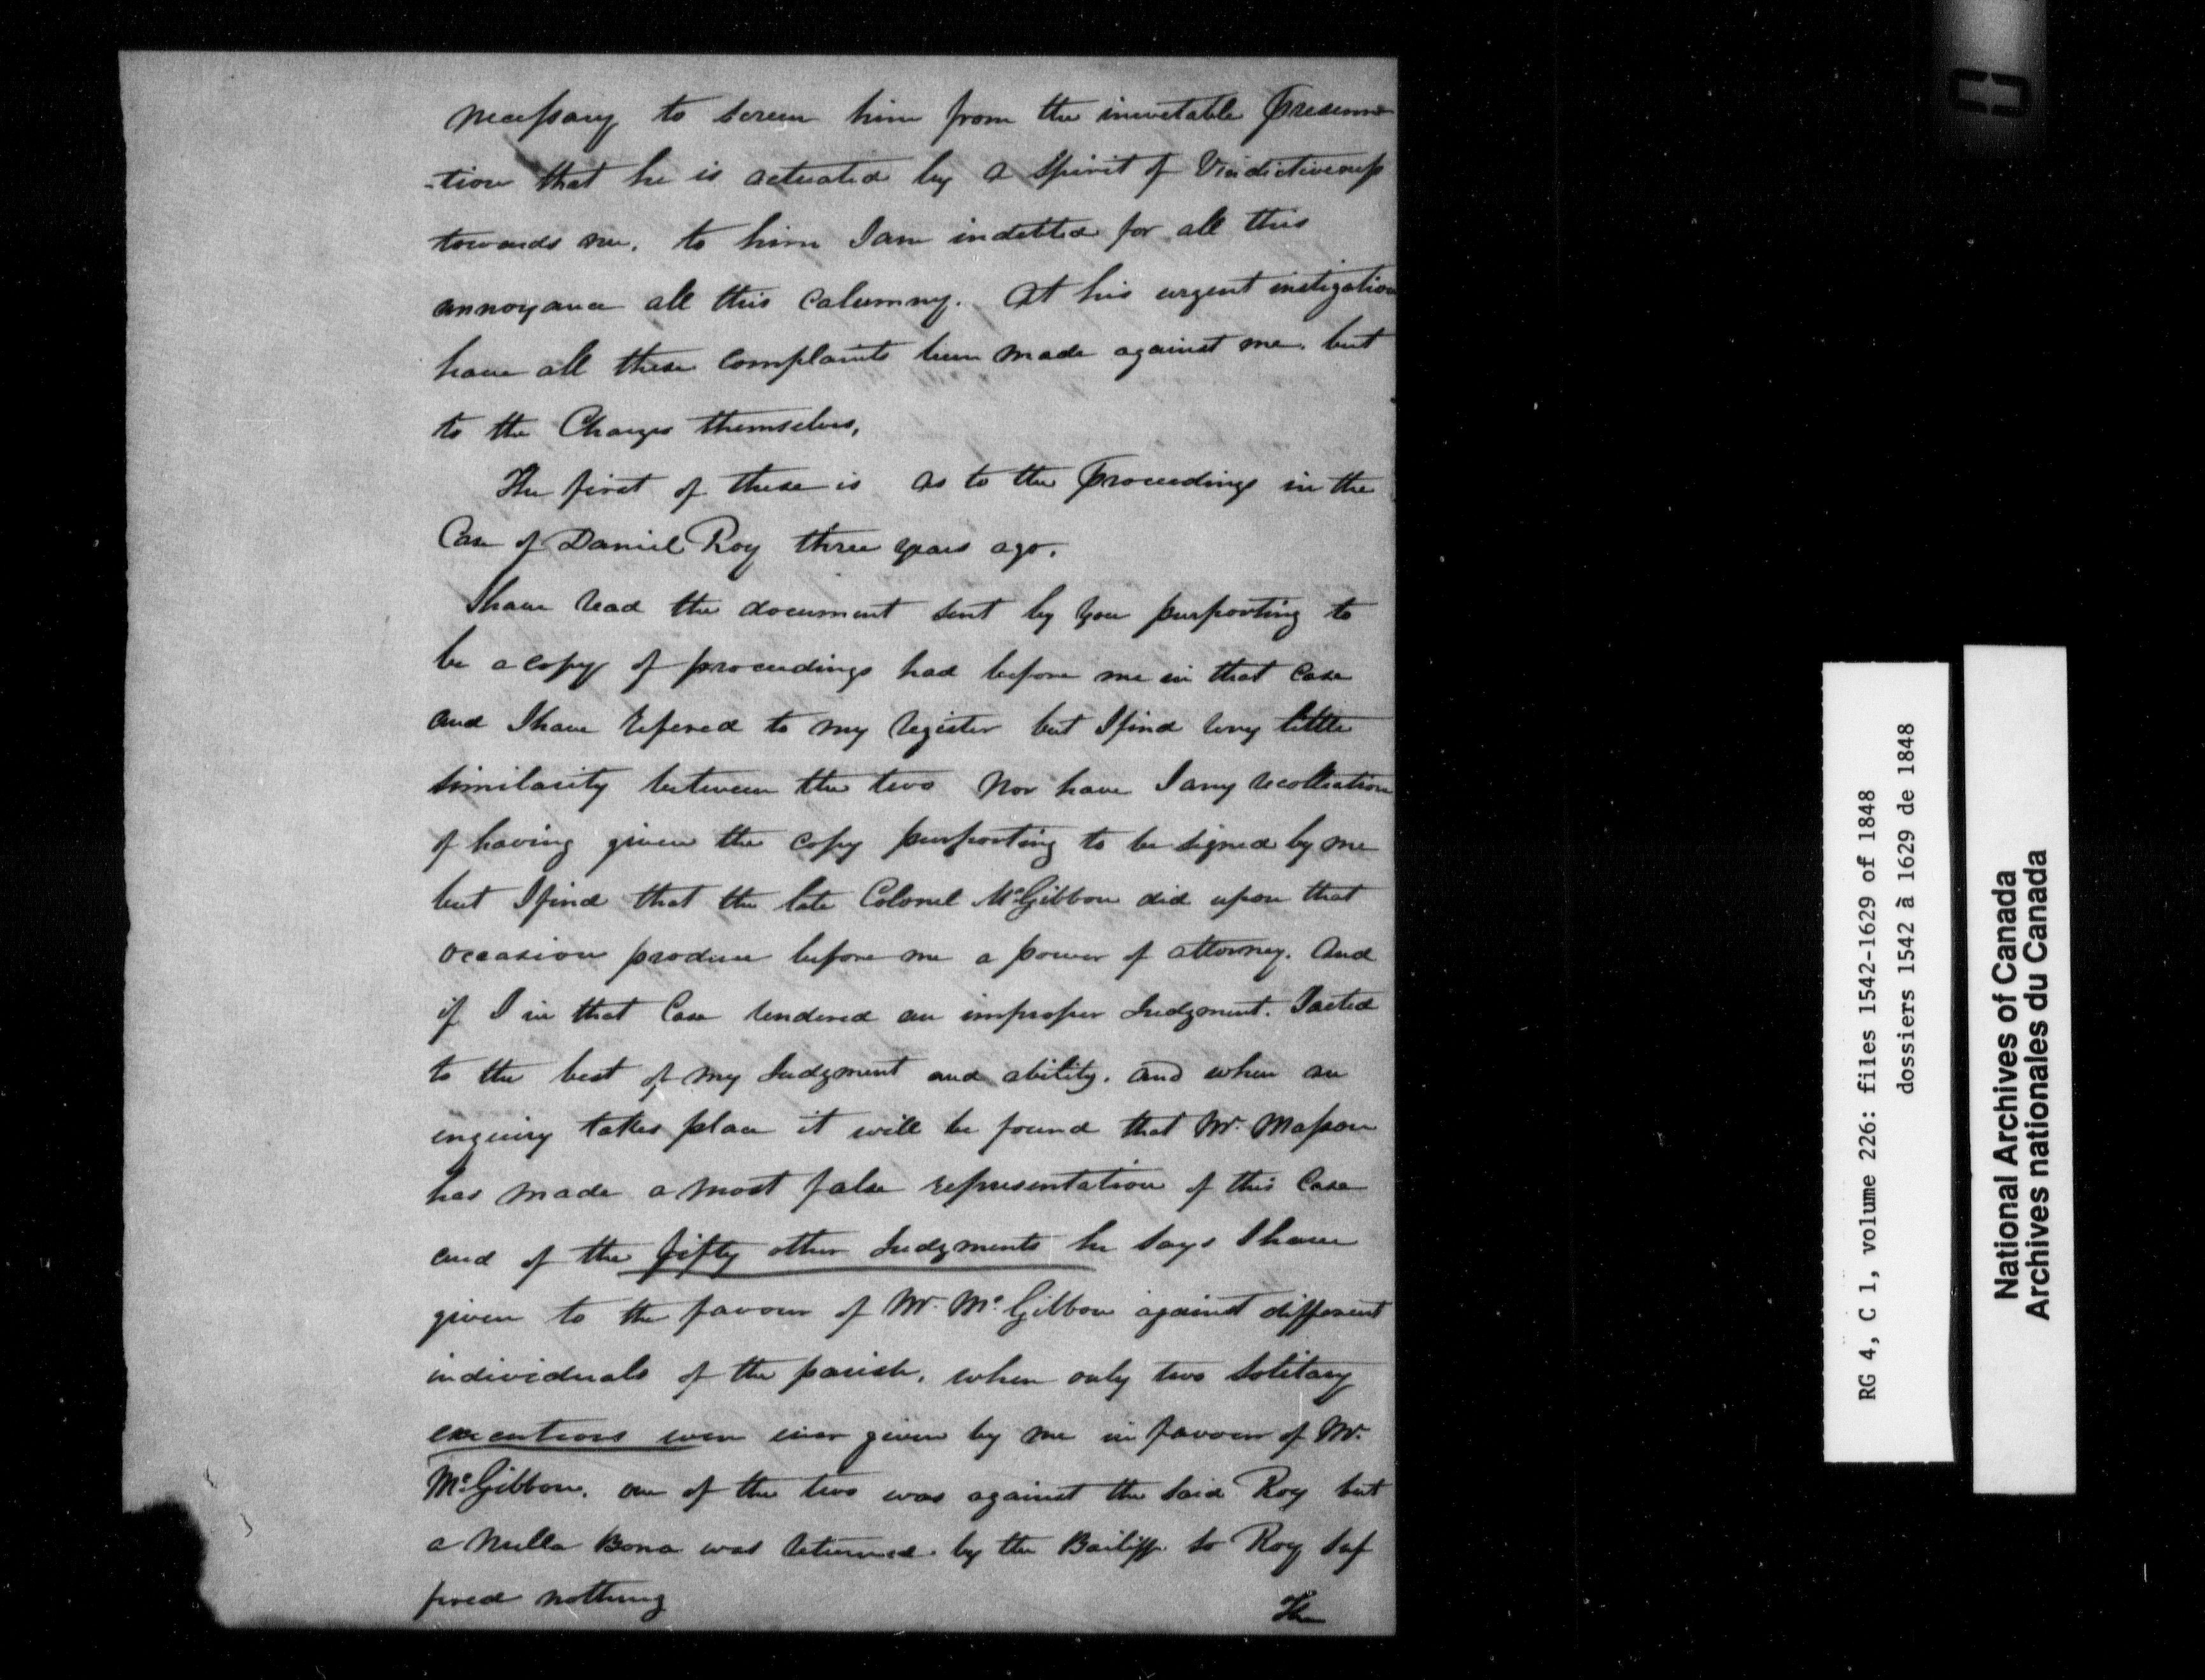 necessary to screen him from the inevitable Presump
-tion that he is actuated by a Spirit of Vindictiveness
towards me. to him I am indebted for all this
annoyance all this Calumny. At his urgent instigation
have all these Complaints been made against me. but
to the Charges themselves,
The first of these is as to the Proceedings in the
Case of Daniel Roy three years ago.
I have read the document sent by you purporting to
be a copy of proceedings had before me in that Case
and I have refered to my register but I find very little
similarity between the two Nor have I any recollection
of having given the Copy purporting to be signed by me
but I find that the late Colonel McGibbon did upon that
occasion produce before me a power of attorney. And
if I in that Case rendered an improper Judgment. I acted
to the best of my Judgment and ability. and when an
enquiry takes place it will be found that Mr. Masson
has made a most false representation of this Case
and of the fifty other Judgments he says I have
given to the favour of Mr. McGibbon against different
individuals of the parish, when only two solitary
executions were ever given by me in favour of Mr.
McGibbon. one of the two was against the said Roy but
a Nulla Bona was returned by the Bailiff so Roy suf
fered nothing
The
RG 4, C 1, volume 226: files 1542-1629 of 1848
dossiers 1542 à 1629 de 1848
National Archives of Canada
Archives nationales du Canada